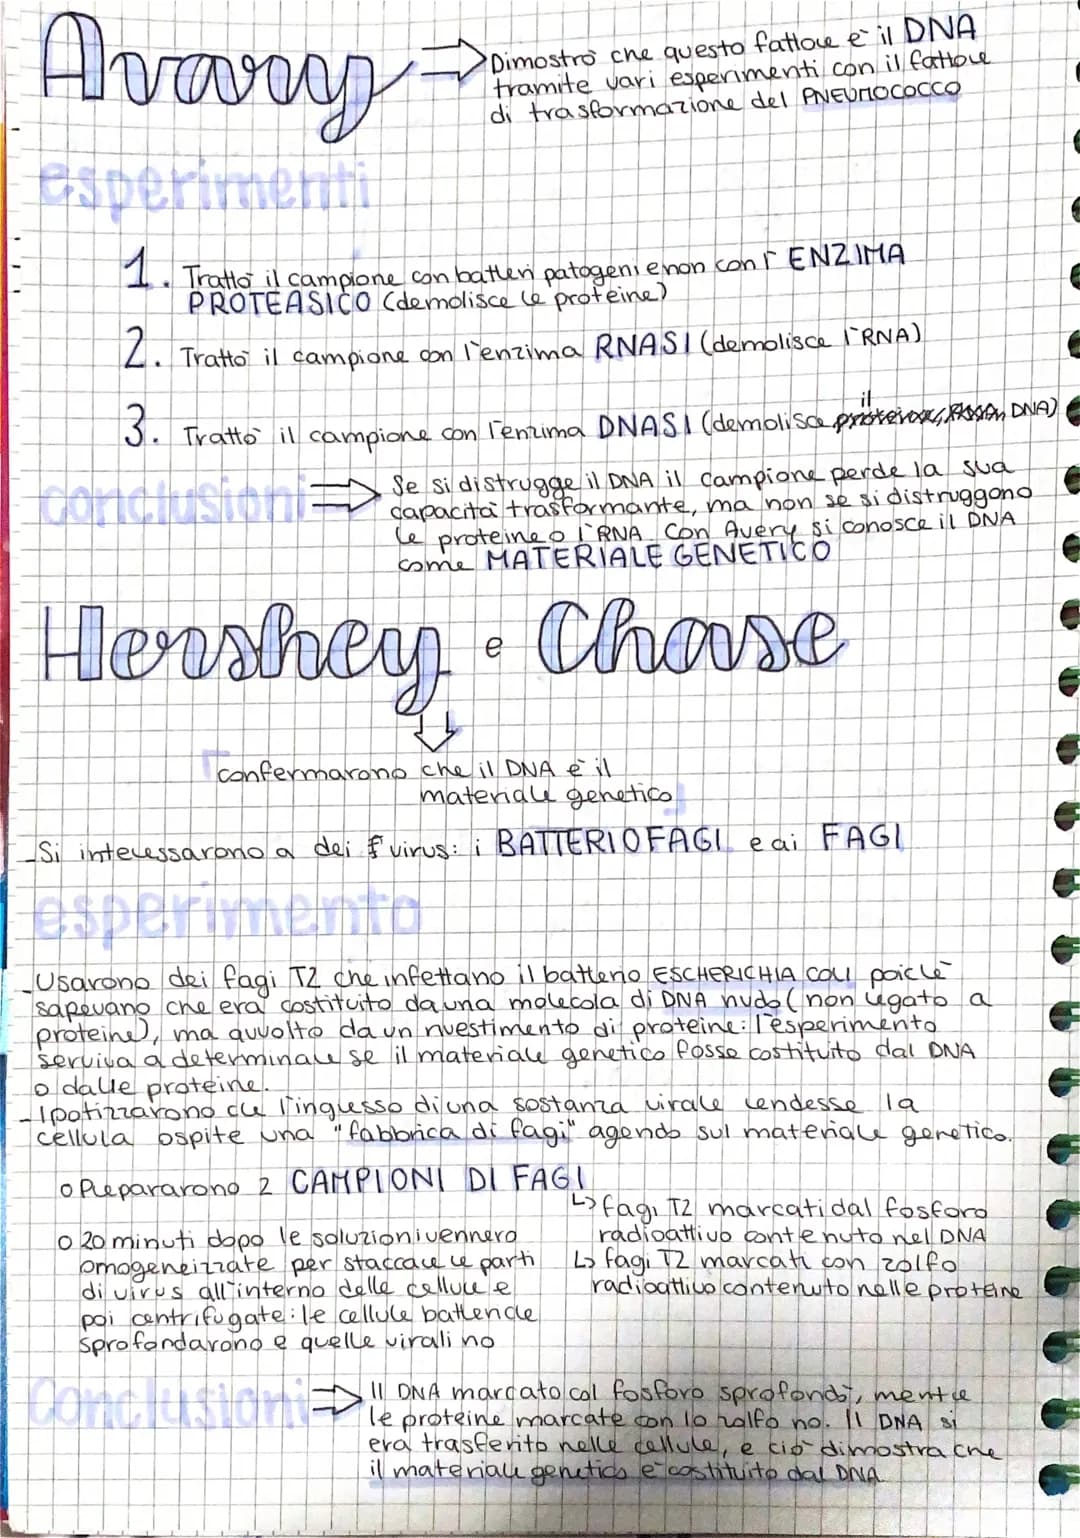 Avavy
Dimostrò che questo fattore è il DNA
tramite vari esperimenti con il fattore
di trasformazione del PNEUMOCOCCO
esperimenti
1. Trattò il campione con batteri patogeni e non con l'ENZIMA
PROTEASICO (demolisce le proteine)
2. Trattò il campione con l'enzima RNASI (demolisce l'RNA)
3. Trattò il campione con l'enzima DNASI (demolisce il DNA)
conclusioni
Se si distrugge il DNA il campione perde la sua
capacità trasformante, ma non se si distruggono
le proteine o l'RNA. Con Avery si conosce il DNA
come MATERIALE GENETICO
Hershey e Chase
confermarono che il DNA è il
materiale genetico
-Si interessarono a dei virus: i BATTERIOFAGI e ai FAGI
esperimento
-Usarono dei fagi T2 che infettano il batterio ESCHERICHIA COLI poichè
sapevano che era costituito da una molecola di DNA nudo (non legato a
proteine), ma avvolto da un rivestimento di proteine: l'esperimento
serviva a determinare se il materiale genetico fosse costituito dal DNA
o dalle proteine.
-Ipotizzarono che l'ingresso di una sostanza virale rendesse la
cellula ospite una "fabbrica di fagi" agendo sul materiale genetico.
o Prepararono 2 CAMPIONI DI FAGI
↳ fagi T2 marcati dal fosforo
radioattivo contenuto nel DNA
↳ fagi T2 marcati con zolfo
radioattivo contenuto nelle proteine
o 20 minuti dopo le soluzioni vennero
omogeneizzate per staccare le parti
di virus all'interno delle cellule e
poi centrifugate: le cellule batteriche
sprofondarono e quelle virali no
Conclusioni
Il DNA marcato col fosforo sprofondò, mentre
le proteine marcate con lo zolfo no. Il DNA si
era trasferito nelle cellule, e ciò dimostra che
il materiale genetico è costituito dal DNA